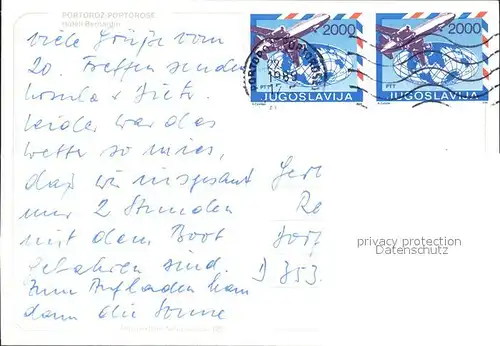 PORTOROŽ-PORTOROSE
Hoteli Bernardin
viele Grüße vom
20. Treffen senden
Ursula + Dietz.
Leider war das
Wetter so mies,
daß wir insgesamt
nur 2 Stunden
mit dem Boot
gefahren sind.
Zum Aufladen kam
dann die Sonne
2000
PTT
JUGOSLAVIJA
2000
PTT
JUGOSLAVIJA
1989
privacy protection
Datenschutz